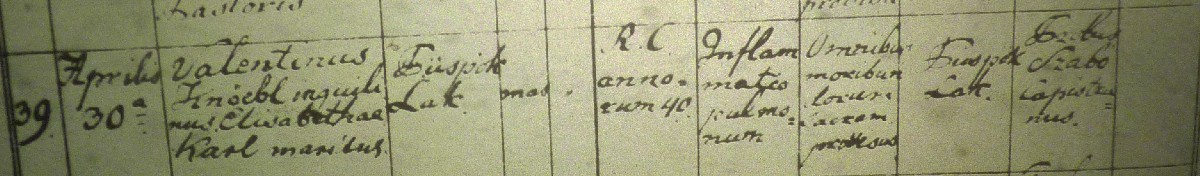 Kastoris
39
Aprilis
30ª
Valentinus
Knöebl inquili
nus. Elisabethae
Karl maritus.
Füspök
Lak.
mas.
R. C.
anno-
rum 40.
Inflam
matio
pulmo=
num
Omnibus
moribun
sacram
provisus
Füspök
Lak.
Szabó